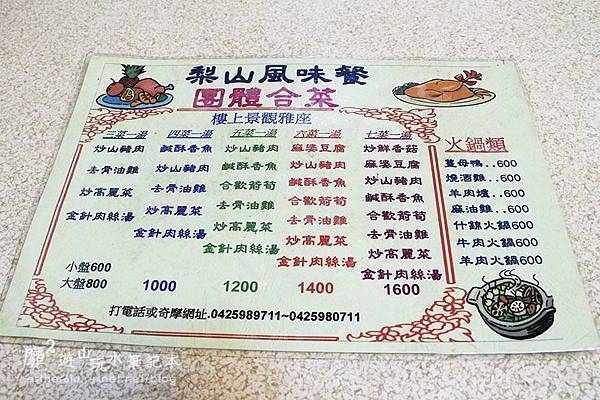 梨山風味餐
團體合菜
樓上景觀雅座
三菜一湯
炒山豬肉
去骨油雞
炒高麗菜
金針肉絲湯
小盤600
大盤800
四菜一湯
鹹酥香魚
炒山豬肉
去骨油雞
炒高麗菜
金針肉絲湯
1000
五菜一湯
炒山豬肉
鹹酥香魚
合歡箭筍
去骨油雞
炒高麗菜
金針肉絲湯
1200
六菜一湯
麻婆豆腐
炒山豬肉
鹹酥香魚
合歡箭筍
去骨油雞
炒高麗菜
金針肉絲湯
1400
七菜一湯
炒鮮香菇
麻婆豆腐
炒山豬肉
鹹酥香魚
合歡箭筍
去骨油雞
炒高麗菜
金針肉絲湯
1600
火鍋類
薑母鴨..600
燒酒雞..600
羊肉爐..600
麻油雞..600
什錦火鍋600
牛肉火鍋600
羊肉火鍋600
打電話或奇摩網址.0425989711~0425980711
遊山玩水筆記本